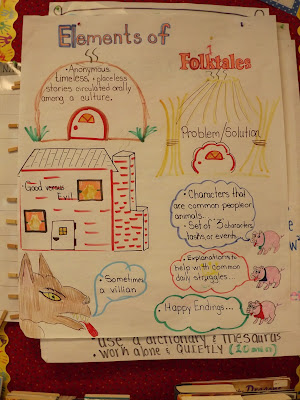 Elements of
Folktales
• Anonymous,
timeless, + placeless
stories circulated orally
among a culture.
Problem/Solution
Good versus
Evil
• Characters that
are common people or
animals.
• Set of 3 characters,
tasks, or events.
• Explanations to
help with common
daily struggles...
• Sometimes
a villian
Happy Endings...
use a dictionary & Thesaurus
• work alone & QUIETLY (20 min)